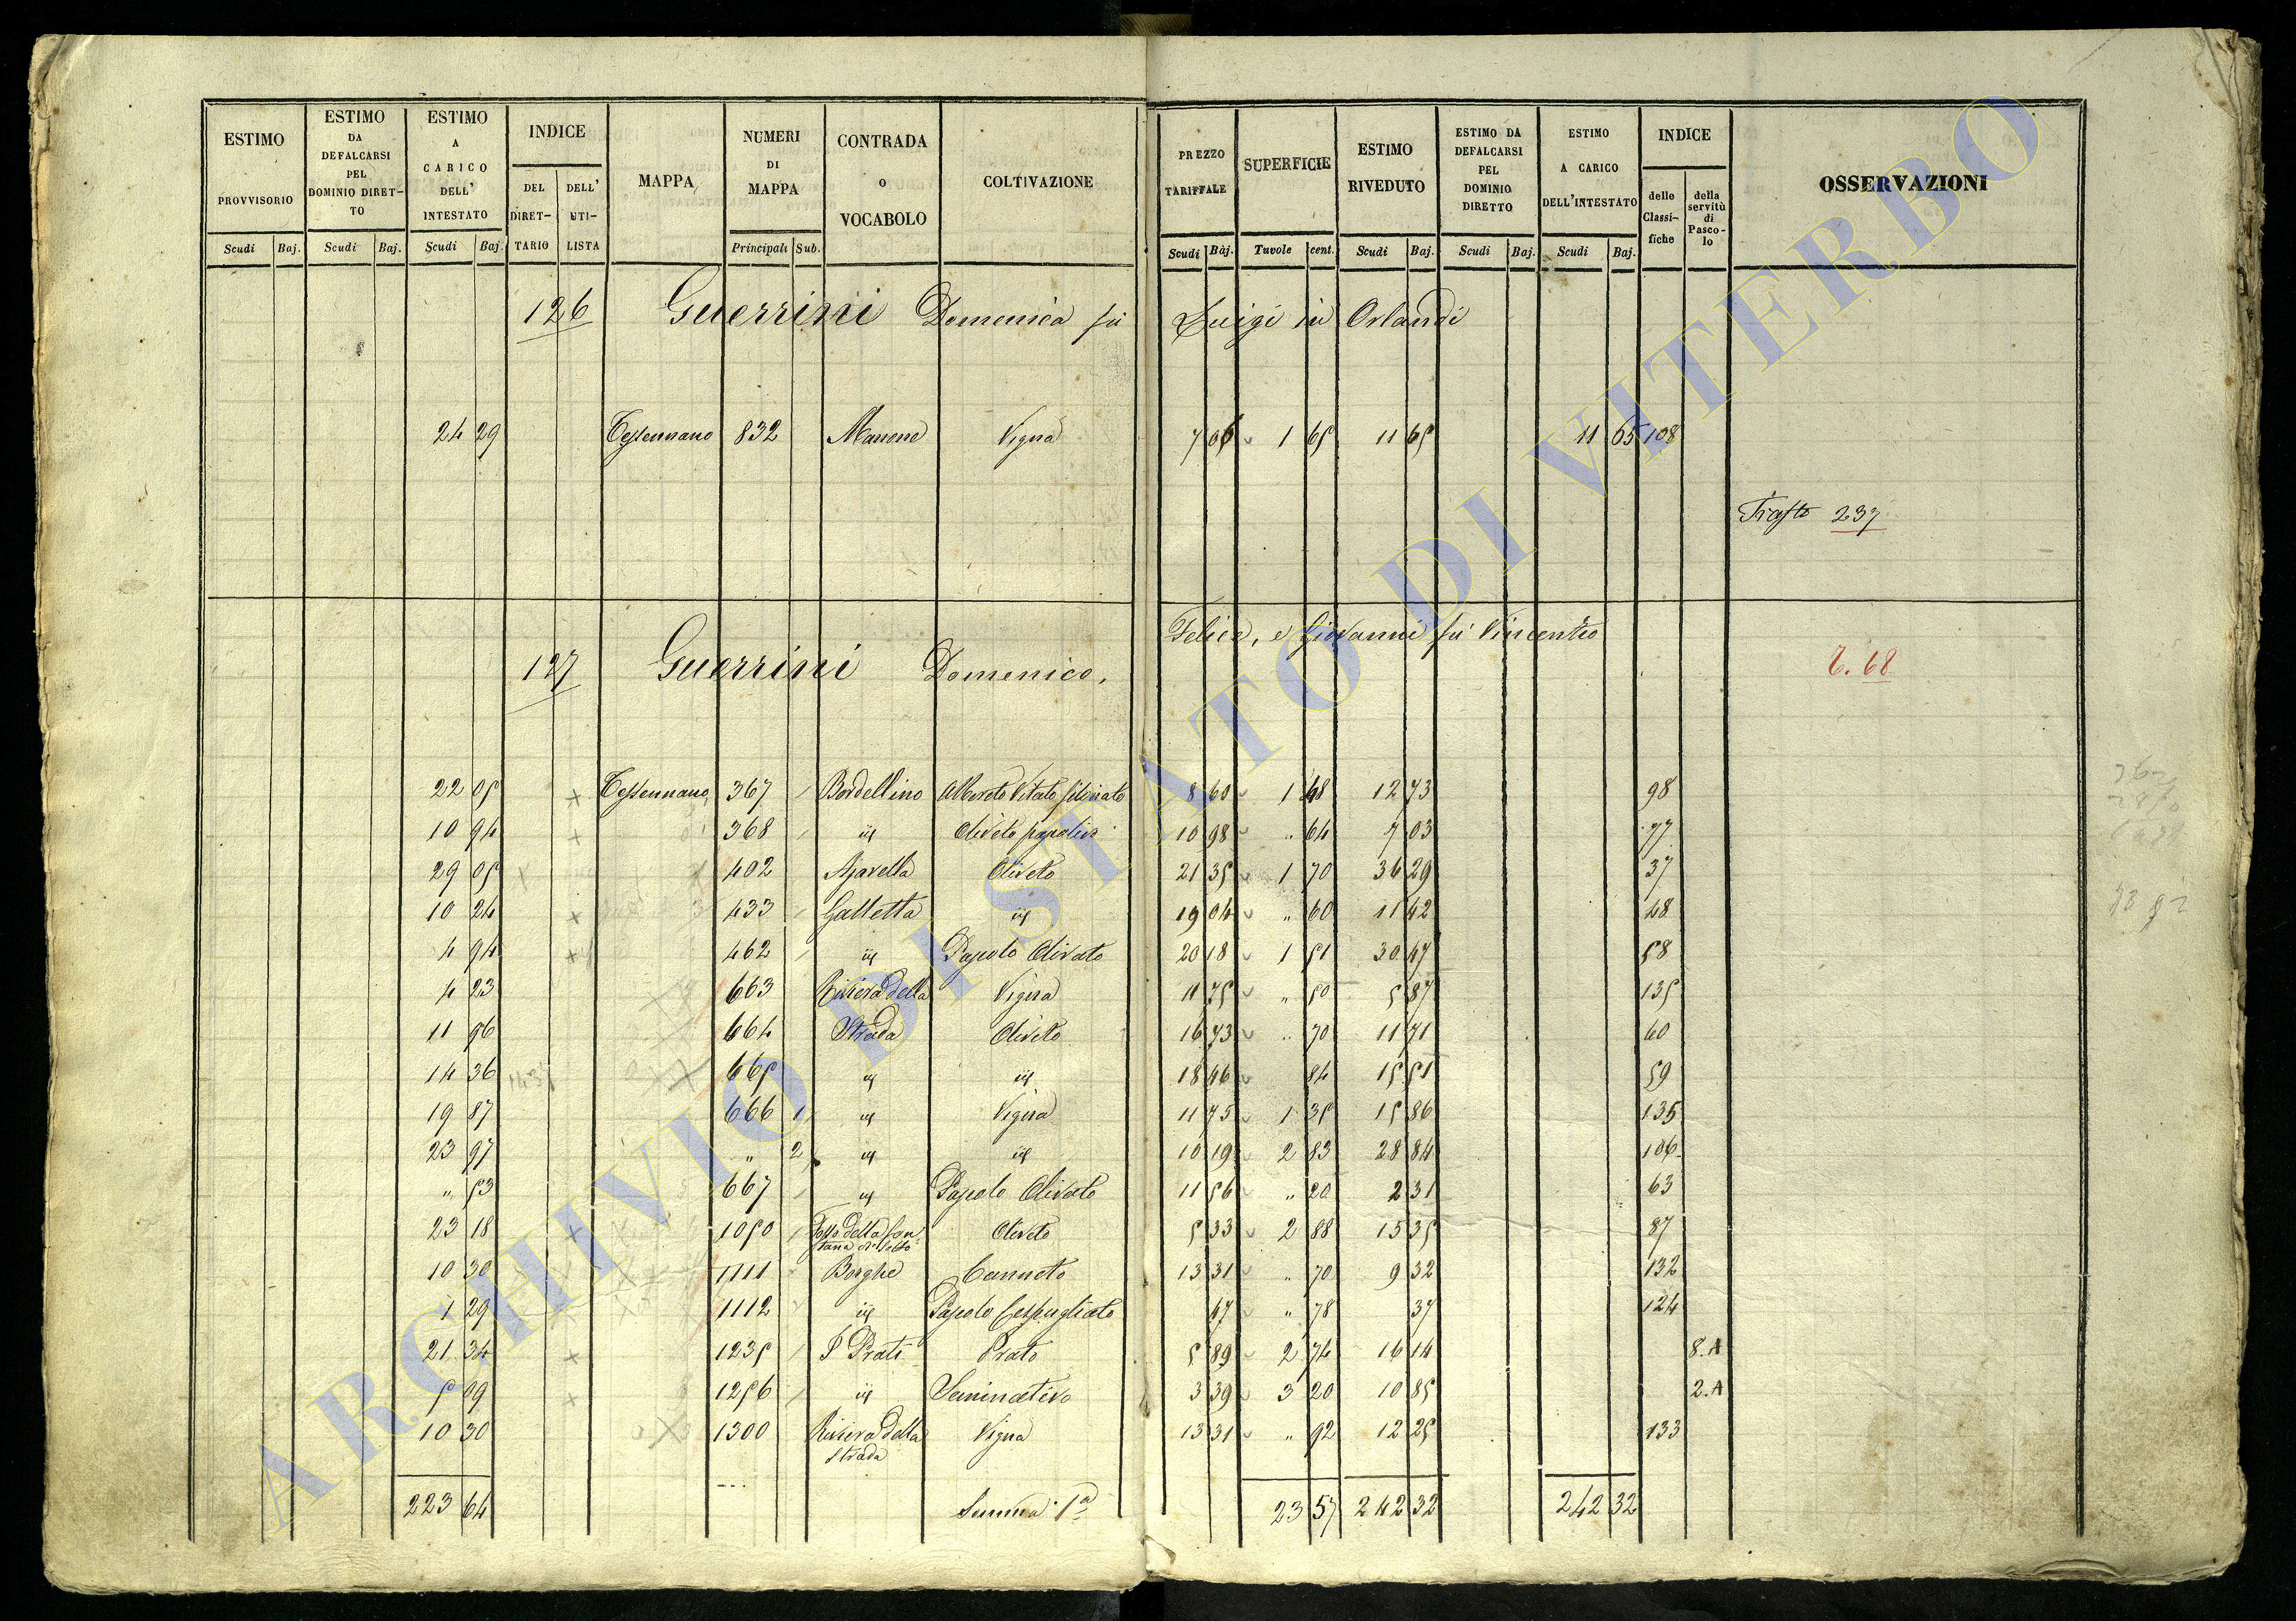 ESTIMO PROVVISORIO Scudi Baj. ESTIMO DA DEFALCARSI PEL DOMINIO DIRETTO Scudi Baj. ESTIMO A CARICO DELL' INTESTATO Scudi Baj. INDICE DEL DIRETTARIO DELL' UTILISTA MAPPA NUMERI DI MAPPA Principali Sub. CONTRADA O VOCABOLO COLTIVAZIONE PREZZO TARIFFALE Scudi Baj. SUPERFICIE Tavole cent. ESTIMO RIVEDUTO Scudi Baj. ESTIMO DA DEFALCARSI PEL DOMINIO DIRETTO Scudi Baj. ESTIMO A CARICO DELL'INTESTATO Scudi Baj. INDICE delle Classifiche della servitù di Pascolo OSSERVAZIONI
126 Guerrini Domenica fù Luigi in Orlandi
24 29 Tessennano 832 Manone Vigna 7 06 1 65 11 65 11 65 108
Trasto 237
127 Guerrini Domenico, Felice, e Giovanni fù Vincenzo
T. 68
22 05 × Tessennano 367 Bordellino Alberato Vitato 8 60 1 48 12 73 98
10 94 × 368 id Oliveto 10 98 " 64 7 03 77
29 05 × 402 Oliveto 21 35 1 70 36 29 37
10 24 × 433 Galletta id 19 04 " 60 11 42 48
4 94 × 462 id Pascolo Olivato 20 18 1 51 30 47 58
4 23 663 Riviera della Vigna 11 75 " 50 5 87 135
11 96 664 Strada Oliveto 16 73 " 70 11 71 60
14 36 665 id id 18 46 84 15 51 59
19 87 666 1 id Vigna 11 75 1 35 15 86 135
23 97 " 2 id id 10 19 2 83 28 84 106
" 53 667 id Pascolo Olivato 11 56 " 20 2 31 63
23 18 × 1050 Fosso della Fontana Oliveto 5 33 2 88 15 35 87
10 30 1111 Borghe Canneto 13 31 " 70 9 32 132
1 29 1112 id Pascolo Cespugliato 47 " 78 37 124
21 34 × 1235 I Prati Prato 5 89 2 74 16 14 8.A
5 09 × 1256 id Seminativo 3 39 3 20 10 85 2.A
10 30 1300 Riviera della Strada Vigna 13 31 " 92 12 25 133
223 64 Summa 1ª 23 57 242 32 242 32
ARCHIVIO DI STATO DI VITERBO